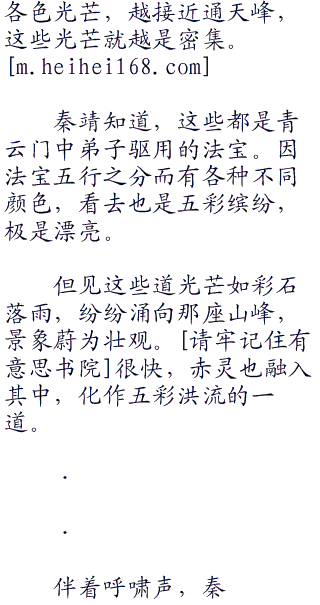 各色光芒，越接近通天峰，
这些光芒就越是密集。
[m.heihei168.com]
秦靖知道，这些都是青
云门中弟子驱用的法宝。因
法宝五行之分而有各种不同
颜色，看去也是五彩缤纷，
极是漂亮。
但见这些道光芒如彩石
落雨，纷纷涌向那座山峰，
景象蔚为壮观。[请牢记住有
意思书院]很快，赤灵也融入
其中，化作五彩洪流的一
道。
.
.
伴着呼啸声，秦